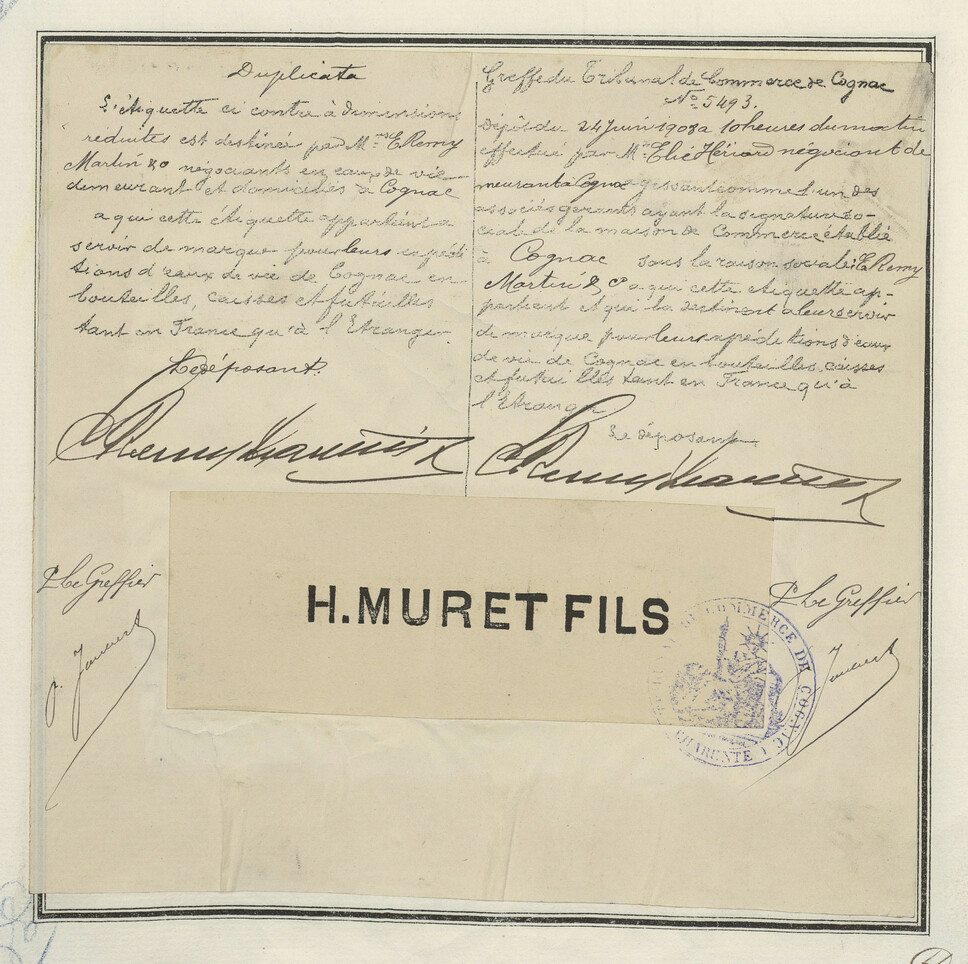 Duplicata
L'étiquette ci contre à dimensions
réduites est destinée par M.rs E. Remy
Martin & Co négociants en eaux de vie
demeurant et domiciliés à Cognac
a qui cette étiquette appartient a
servir de marque pour leurs expédi
tions d'eaux de vie de Cognac en
bouteilles, caisses et futailles
tant en France qu'à l'Etranger
Le déposant.
Remy Martin &
Greffe du Tribunal de Commerce de Cognac
No 5493.
Dépôt du 24 Juin 1908 a 10 heures du matin
effectué par Mr Elie Hériard négociant de
meurant à Cognac agissant comme l'un des
associés gerants ayant la signature so-
ciale de la maison de Commerce établie
à Cognac sous la raison sociale: E. Remy
Martin & Co a qui cette étiquette ap-
partient et qui la destinent a leur servir
de marque pour leurs expéditions d'eaux
de vie de Cognac en bouteilles, caisses
et futailles tant en France qu'à
l'Etranger
Le déposant
Remy Martin &
P. Le Greffier
H. MURET FILS
P. Le Greffier
COMMERCE DE COGNAC
CHARENTE